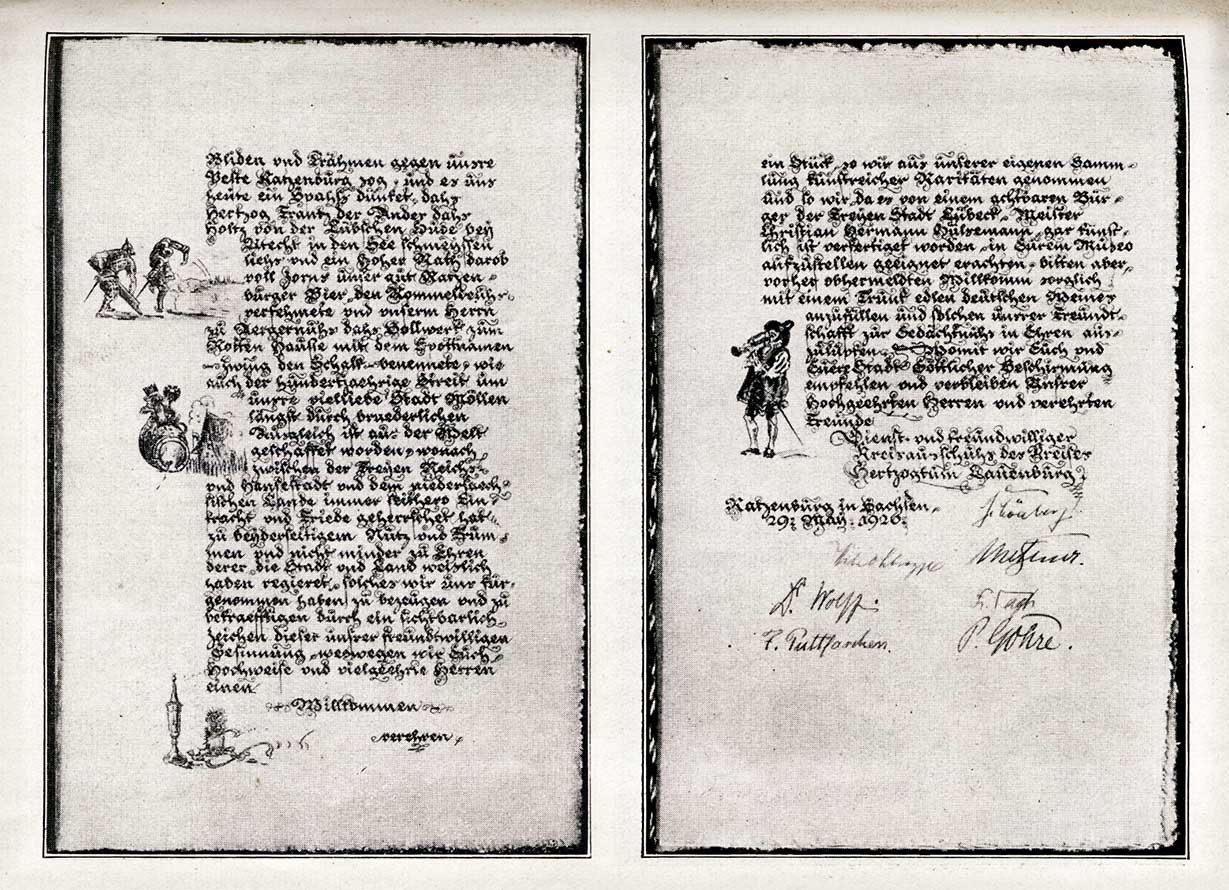 Bliden und Trähmen gegen unsre
Veste Ratzenburg zog, und es uns
heute ein Spahss dünket, dahs
Hertzog Frantz der Ander dahs
Holtz von der Lübschen Hude bey
Utecht in den See schmeyssen
liehs und ein Hoher Rath darob
voll Zorns unser gut Ratzen-
burger Bier, den Rommeldeuhs,
verfehmete und unserm Herrn
zu Aergernühs dahs Bollwerk zum
Rotten Hausse mit dem Spottnamen
"Zwing den Schalk" venennete, wie
auch der hundertjaehrige Streit um
unsre vielliebe Stadt Möllen
längst durch bruederlichen
Ausgleich ist aus der Welt
geschaffet worden, wonach
zwischen der Freyen Reichs-
und Hansestadt und dem niedersaech-
sischen Lande immer seithero Ein-
tracht und Friede geherrschet hat
zu beyderseitigem Nutz und From-
men und nicht minder zu Ehren
derer, die Stadt und Land weislich
haben regieret, solches wir uns für-
genommen haben zu bezeugen und zu
bekraefftigen durch ein sichtbarlich
Zeichen dieser unsrer freundtwilligen
Gesinnung, weswegen wir Euch
Hochweise und vielgeehrte Herren
einen
Willkommen
verehren,
ein Stück, so wir aus unserer eigenen Samm-
lung kunstreicher Raritäten genommen
und so wir, da es von einem achtbaren Bür-
ger der Freyen Stadt Lübeck, Meister
Christian Hermann Hülsemann, gar künst-
lich ist verfertiget worden, in Eurem Museo
aufzustellen geeignet erachten, bitten aber,
vorher obbermeldten Willkomm sorglich
mit einem Trunk edlen deutschen Weines
anzufüllen und solchen unsrer Freundt-
schafft zur Gedächtnühs in Ehren aus-
zulüpfen. Womit wir Euch und
Euere Stadt Göttlicher Beschirmung
empfehlen und verbleiben Unsrer
Hochgeehrten Herren und verehrten
Freunde
Dienst- und freundwilliger
Kreisausschuhs des Kreises
Hertzogtum Lauenburg.
Ratzenburg in Sachsen,
29. May. 1926.
Dr. Wolff.
P. Göhre.